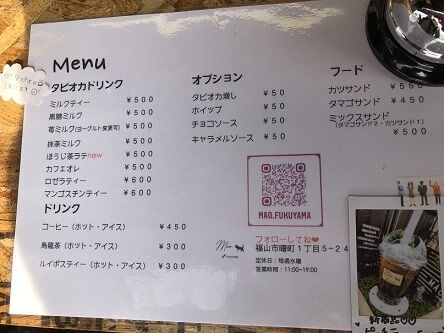 Menu
タピオカドリンク
ミルクティー ￥500
黒糖ミルク ￥500
苺ミルク(ヨーグルト変更可) ￥500
抹茶ミルク ￥500
ほうじ茶ラテnew ￥500
カフェオレ ￥500
ロゼラティー ￥600
マンゴスチンティー ￥600
ドリンク
コーヒー（ホット・アイス） ￥450
烏龍茶（ホット・アイス） ￥300
ルイボスティー（ホット・アイス） ￥300
オプション
タピオカ増し ￥50
ホイップ ￥50
チョコソース ￥50
キャラメルソース ￥50
MAO.FUKUYAMA
フォローしてね❤
福山市曙町1丁目5−24
定休日：毎週水曜
営業時間：11:00~19:00
フード
カツサンド ￥550
タマゴサンド ￥450
ミックスサンド
（タマゴサンド2・カツサンド1）
￥500